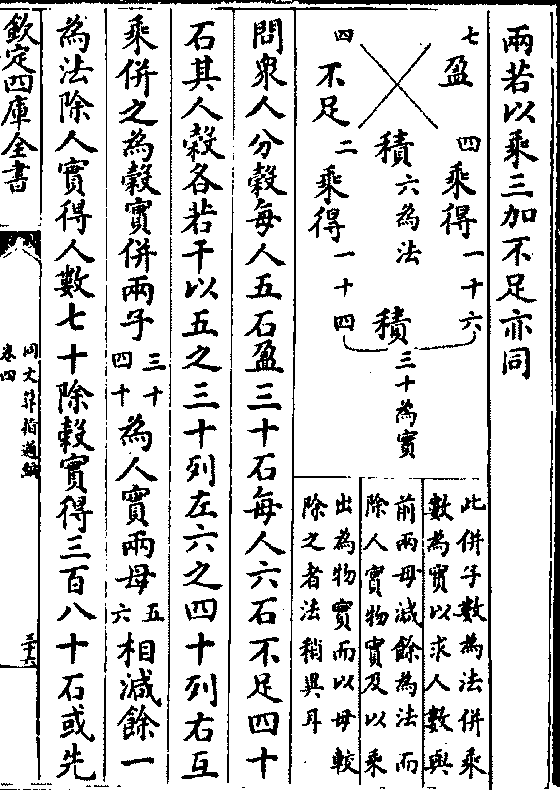 兩若以乘三加不足亦同
七 盈 四 乘得 一十六
積 六為法 積 三十為實
四 不足 二 乘得 一十四
此併子數為法併乘
數為實以求人數與
前兩母減餘為法而
除人實物實及以乘
出為物實而以母較
除之者法稍異耳
問衆人分穀每人五石盈三十石每人六石不足四十
石其人穀各若干以五之三十列左六之四十列右互
乘併之為穀實併兩子三十四十為人實兩母五六相減餘一
為法除人實得人數七十除穀實得三百八十石或先
欽定四庫全書
同文算指通編
卷四
三十六